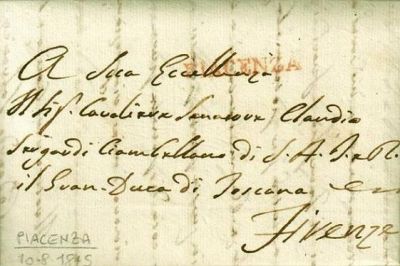 PIACENZA
A Sua Eccellenza
Il Sig. Cavaliere Senatore Claudio
Ciambellano di S. A. I. e R.
il Gran-Duca di Toscana
Firenze
PIACENZA
10-8 1815